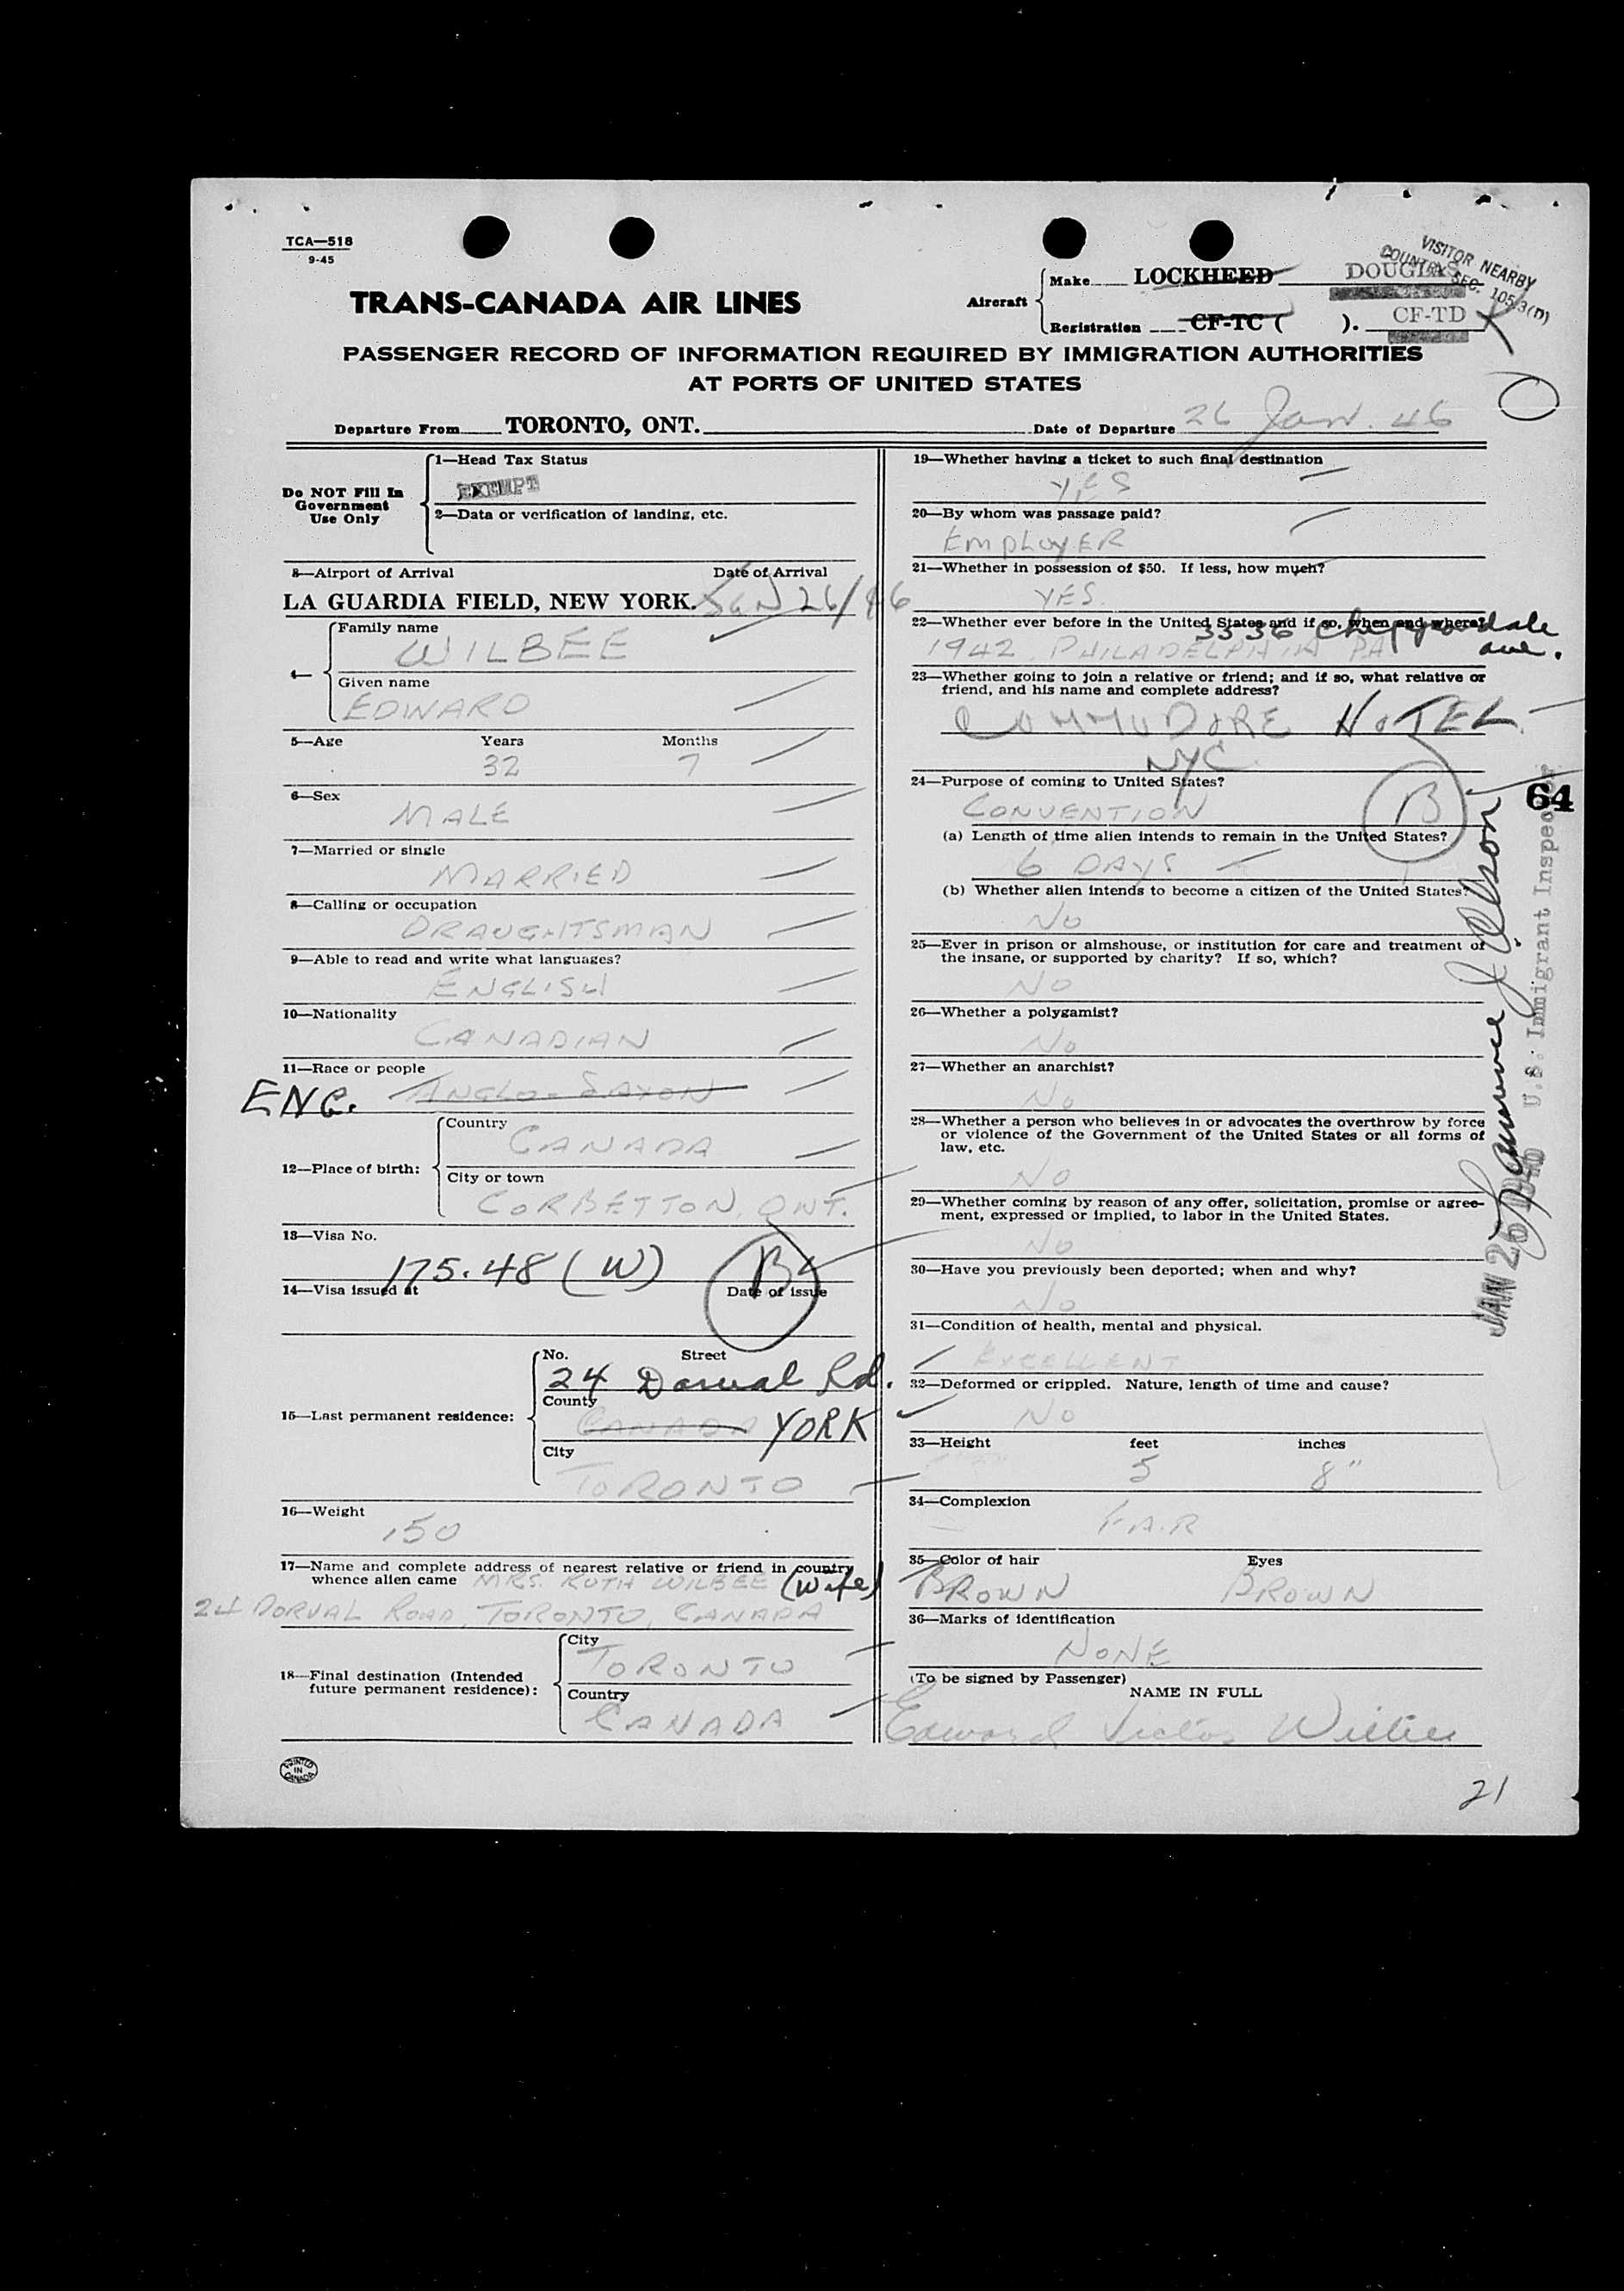 TCA—518
9-45
VISITOR NEARBY
COUNTRY SEC. 105.3(D)
TRANS-CANADA AIR LINES
Aircraft
Make LOCKHEED DOUGLAS
Registration CF-TC ( ). CF-TD
PASSENGER RECORD OF INFORMATION REQUIRED BY IMMIGRATION AUTHORITIES
AT PORTS OF UNITED STATES
Departure From TORONTO, ONT. Date of Departure 26 Jan. 46
Do NOT Fill In
Government
Use Only
1—Head Tax Status
EXEMPT
2—Data or verification of landing, etc.
3—Airport of Arrival Date of Arrival
LA GUARDIA FIELD, NEW YORK. JAN 26/46
4—
Family name
WILBEE
Given name
EDWARD
5—Age Years Months
32 7
6—Sex
MALE
7—Married or single
MARRIED
8—Calling or occupation
DRAUGHTSMAN
9—Able to read and write what languages?
ENGLISH
10—Nationality
CANADIAN
11—Race or people
ENG. ANGLO-SAXON
12—Place of birth:
Country
CANADA
City or town
CORBETTON, ONT.
13—Visa No.
175.48 (W) B
14—Visa issued at Date of issue
15—Last permanent residence:
No. Street
24 Dorval Rd.
County
CANADA YORK
City
TORONTO
16—Weight
150
17—Name and complete address of nearest relative or friend in country
whence alien came MRS. RUTH WILBEE (Wife)
24 DORVAL ROAD, TORONTO, CANADA
18—Final destination (Intended
future permanent residence):
City
TORONTO
Country
CANADA
PRINTED
IN
CANADA
19—Whether having a ticket to such final destination
YES
20—By whom was passage paid?
EMPLOYER
21—Whether in possession of $50. If less, how much?
YES
22—Whether ever before in the United States and if so, when and where?
3336 ave.
1942, PHILADELPHIA PA
23—Whether going to join a relative or friend; and if so, what relative or
friend, and his name and complete address?
COMMODORE HOTEL
NYC
24—Purpose of coming to United States?
CONVENTION B
(a) Length of time alien intends to remain in the United States?
6 DAYS
(b) Whether alien intends to become a citizen of the United States?
NO
25—Ever in prison or almshouse, or institution for care and treatment of
the insane, or supported by charity? If so, which?
NO
26—Whether a polygamist?
NO
27—Whether an anarchist?
NO
28—Whether a person who believes in or advocates the overthrow by force
or violence of the Government of the United States or all forms of
law, etc.
NO
29—Whether coming by reason of any offer, solicitation, promise or agree-
ment, expressed or implied, to labor in the United States.
NO
30—Have you previously been deported; when and why?
NO
31—Condition of health, mental and physical.
EXCELLENT
32—Deformed or crippled. Nature, length of time and cause?
NO
33—Height feet inches
5 8"
34—Complexion
FAIR
35—Color of hair Eyes
BROWN BROWN
36—Marks of identification
NONE
(To be signed by Passenger)
NAME IN FULL
Edward Victor Wilbee
64
JAN 26 1946
U.S. Immigrant Inspector
21